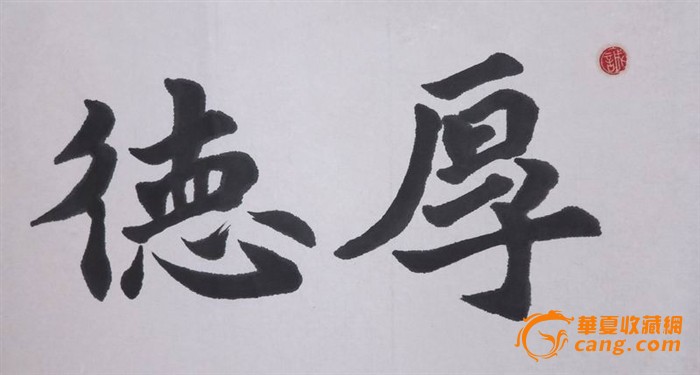 厚德
華夏收藏網
cang.com